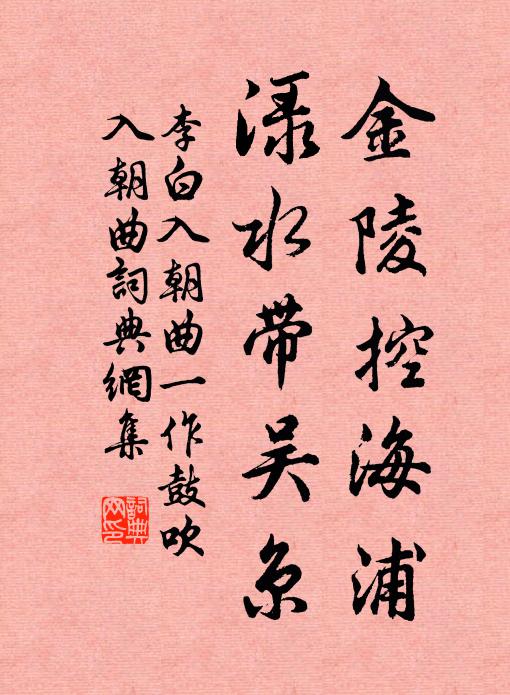 金陵控海浦
渌水带吴京
李白入朝曲一作鼓吹
入朝曲詞典網集
詞典网印